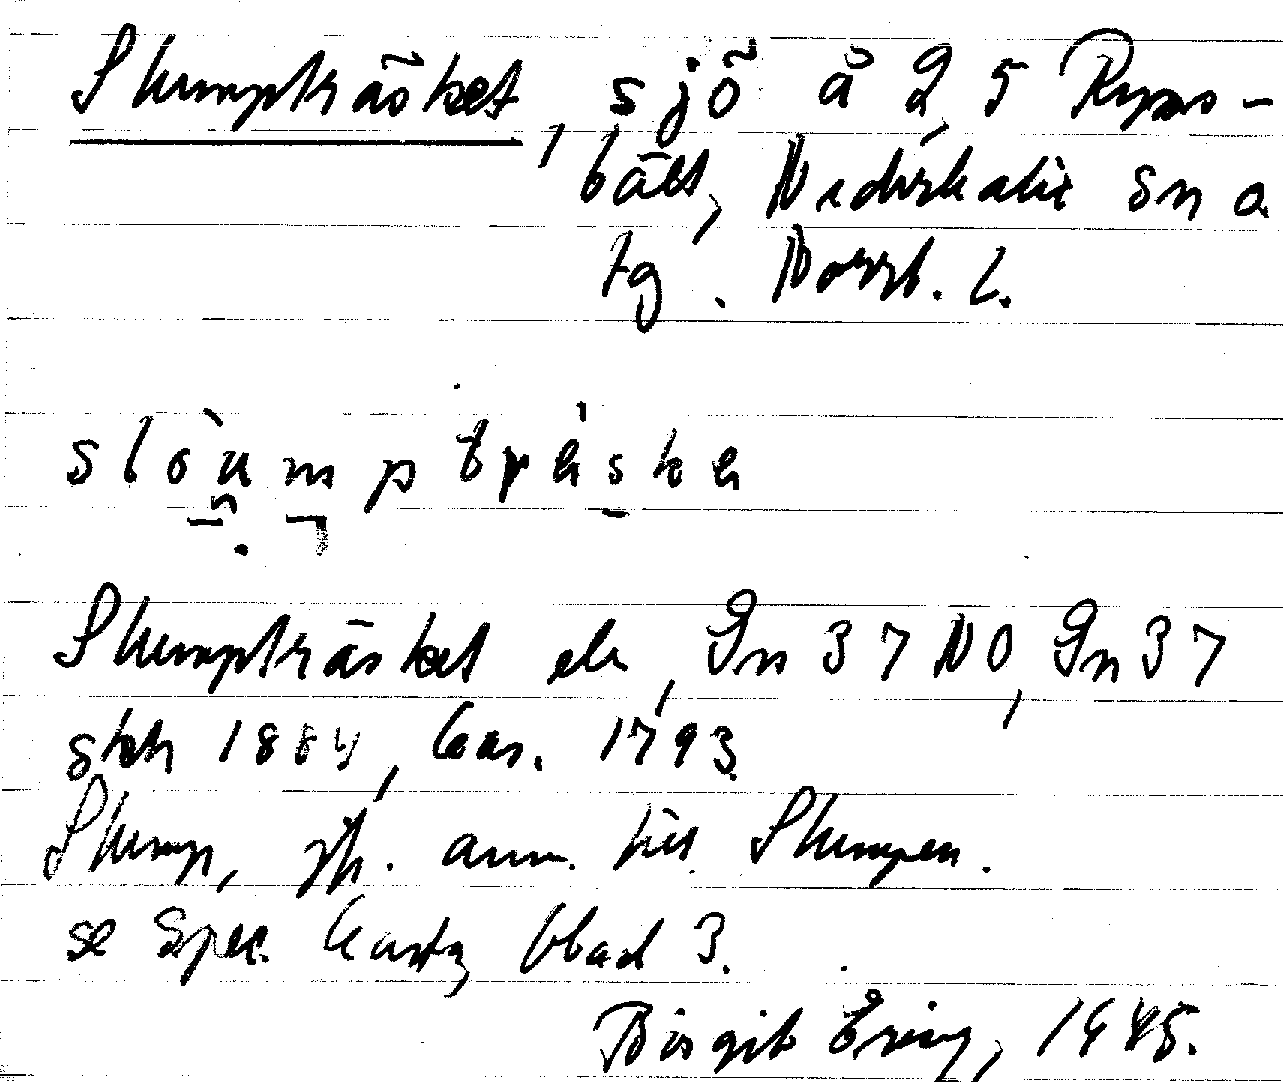 Slumpträsket, sjö å 2,5 Ryss-
bält, Nederkalix sn o.
tg. Norrb. l.
slòumptrèske
Slumpträsket ek, Gn 37 NO, Gn 37
1884, 1793
Slump, jfr. anm. till Slumpen.
se Spec. Karta, blad 3.
Birgit 1945.